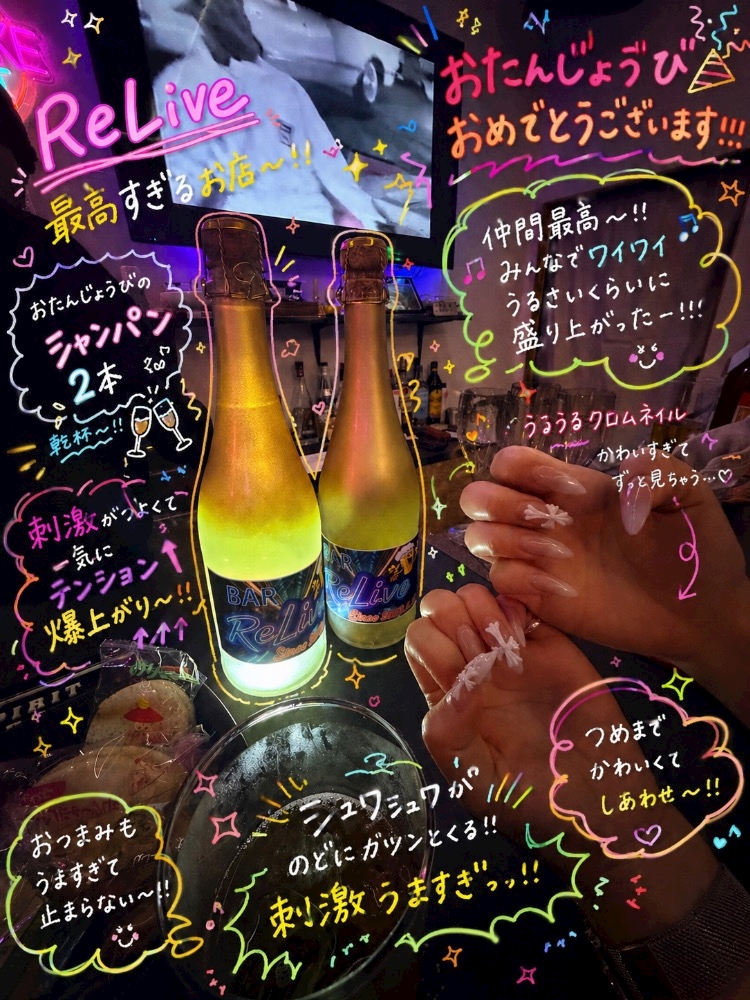 ReLive
最高すぎるお店〜!!
おたんじょうび
おめでとうございます!!!
仲間最高〜!!
みんなでワイワイ
うるさいくらいに
盛り上がったー!!!
おたんじょうびの
シャンパン
2本
乾杯〜!!
うるうるクロムネイル
かわいすぎて
ずっと見ちゃう…♡
刺激がつよくて
一気に
テンション
爆上がり〜!!
BAR
ReLive
Since
BAR
ReLive
Since
PIRIT
つめまで
かわいくて
しあわせ〜!!
シュワシュワが
のどにガツンとくる!!
刺激うますぎっっ!!
おつまみも
うますぎて
止まらない〜!!